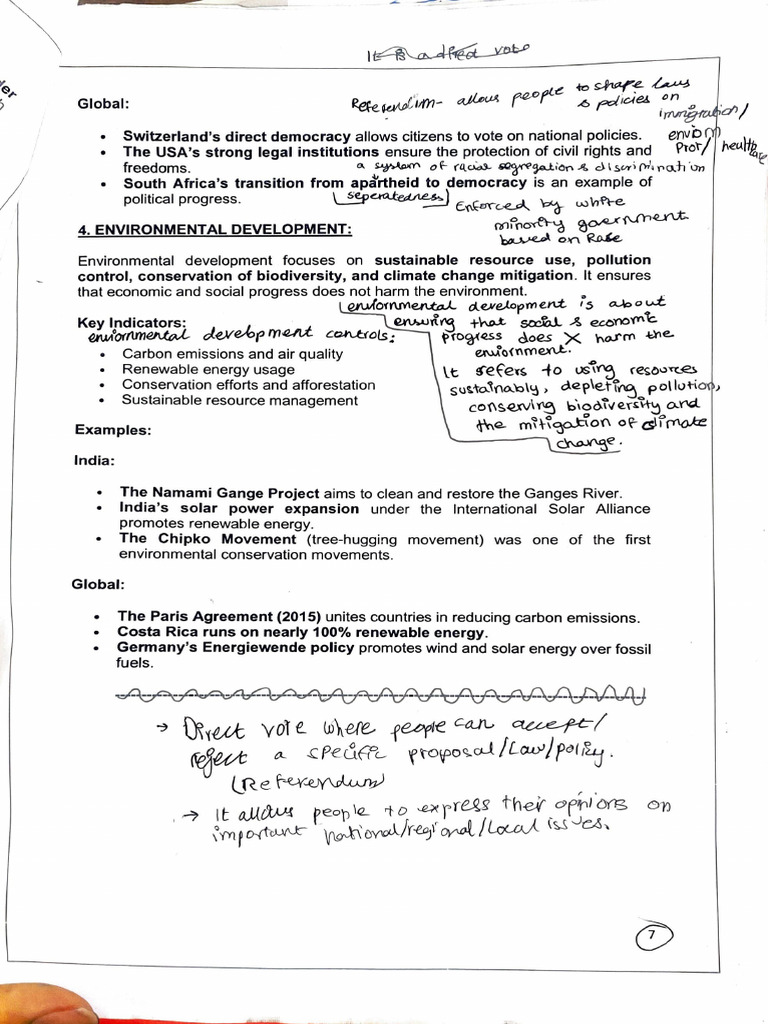 It is a direct vote
Global:
Referendim- allows people to shape laws
& policies on
immigration/
enviorn
Prot/ healthcare
• Switzerland's direct democracy allows citizens to vote on national policies.
• The USA's strong legal institutions ensure the protection of civil rights and
freedoms.
a system of racial segregation & discrimination
• South Africa's transition from apartheid to democracy is an example of
political progress.
seperatedness
Enforced by white
minority government
based on Rase
4. ENVIRONMENTAL DEVELOPMENT:
Environmental development focuses on sustainable resource use, pollution
control, conservation of biodiversity, and climate change mitigation. It ensures
that economic and social progress does not harm the environment.
enviornmental development is about
ensuring that social & economic
progress does X harm the
enviornment.
It refers to using resources
sustainably, depleting pollution,
conserving biodiversity and
the mitigation of climate
change.
Key Indicators:
enviornmental development controls:
• Carbon emissions and air quality
• Renewable energy usage
• Conservation efforts and afforestation
• Sustainable resource management
Examples:
India:
• The Namami Gange Project aims to clean and restore the Ganges River.
• India's solar power expansion under the International Solar Alliance
promotes renewable energy.
• The Chipko Movement (tree-hugging movement) was one of the first
environmental conservation movements.
Global:
• The Paris Agreement (2015) unites countries in reducing carbon emissions.
• Costa Rica runs on nearly 100% renewable energy.
• Germany's Energiewende policy promotes wind and solar energy over fossil
fuels.
→ Direct vote where people can accept/
reject a specific proposal/Law/policy.
(Referendum)
→ It allows people to express their opinions on
important national/regional/local issues.
7